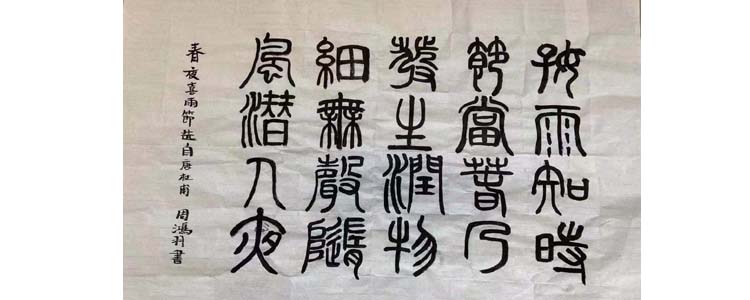 好雨知時
節當春乃
發生潤物
細無聲隨
風潛入夜
春夜喜雨節选自唐杜甫 周鴻羽書